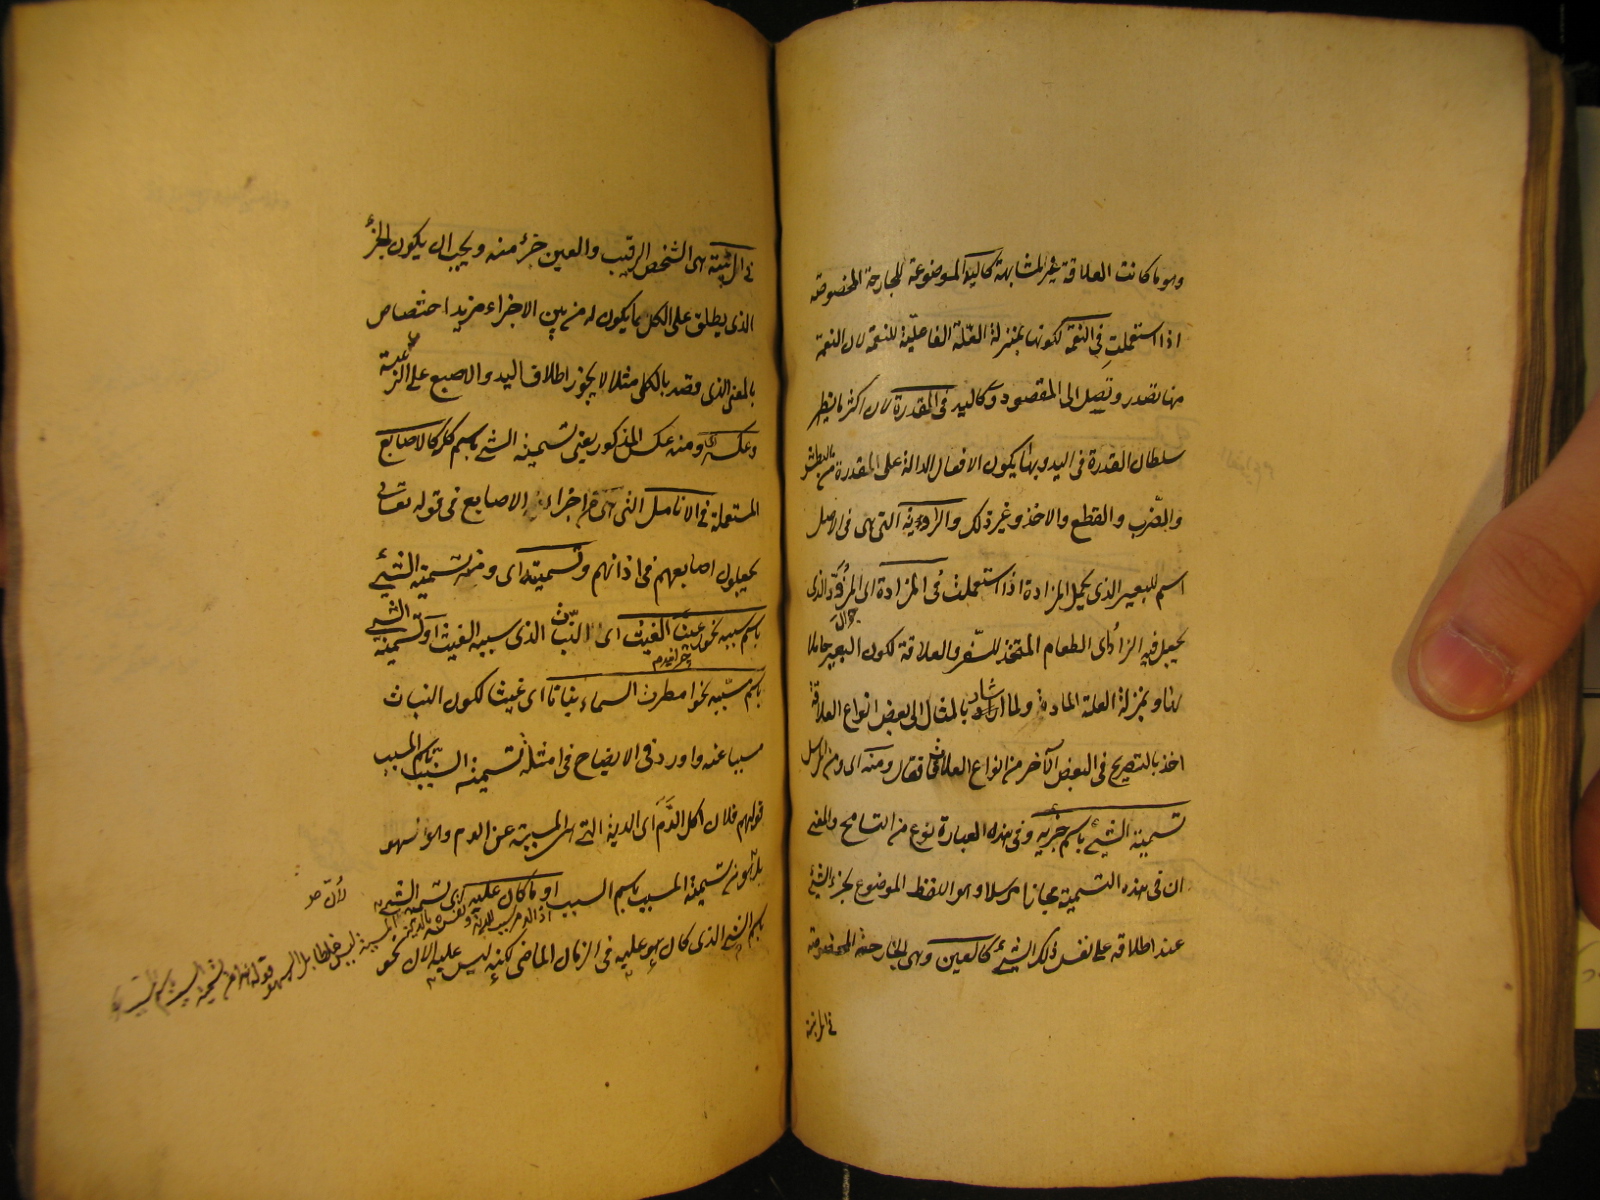 وهو ما كانت العلاقة غير المشابهة كاليد الموضوعة للجارحة المخصوصة
اذا استعملت في النعمة لكونها بمنزلة العلة الفاعلية للنعمة لان النعمة
منها تصدر وتصل الى المقصود وكاليد في القدرة لان اكثر ما يظهر
سلطان القدرة في اليد وبها يكون الافعال الدالة على المقدرة من البطش
والضرب والقطع والاخذ وغير ذلك والراوية التي هي في الاصل
اسم للبعير الذي يحمل المزادة اذا استعملت في المزادة اى المزود الذي
يجعل فيه الزاد اى الطعام المتخذ للسفر والعلاقة لكون البعير حاملا
لها وبمنزلة العلة المادية ولما اشار بالمثال الى بعض انواع العلاقة
اخذ بالتصريح في البعض الآخر من انواع العلاقات فقال ومنه اى ومن المرسل
تسمية الشئ باسم جزئه وفي هذه العبارة نوع من التسامح والمعنى
ان في هذه التسمية مجازا مرسلا وهو اللفظ الموضوع لجزء الشئ
عند اطلاقه على نفس ذلك الشئ كالعين وهي الجارحة المخصوصة
في الربيئة
في الربيئة هى الشخص الرقيب والعين جزء منه ويجب ان يكون الجزء
الذى يطلق على الكل مما يكون له من بين الاجزاء مزيد اختصاص
بالمعنى الذى قصد بالكل مثلا لا يجوز اطلاق اليد والاصبع على الربيئة
وعكسه اى ومنه عكس المذكور يعنى تسمية الشئ باسم كله كالاصابع
المستعملة في الانامل التى هى من اجزاء الاصابع في قوله تعالى
يجعلون اصابعهم في اذانهم وتسميته اى ومنه تسمية الشئ
باسم سببه نحو رعينا الغيث اى النبات الذى سببه الغيث او تسمية الشئ
باسم مسببه نحو امطرت السماء نباتا اى غيثا لكون النبات
مسببا عنه واورد في الايضاح في امثلة تسمية السبب باسم المسبب
قولهم فلان اكل الدم اى الدية التى هى المسببة عن الدم وهو سهو
بل هو من تسمية المسبب باسم السبب او ما كان عليه اى تسمية الشئ
باسم الشئ الذى كان هو عليه في الزمان الماضى لكنه ليس عليه الآن نحو